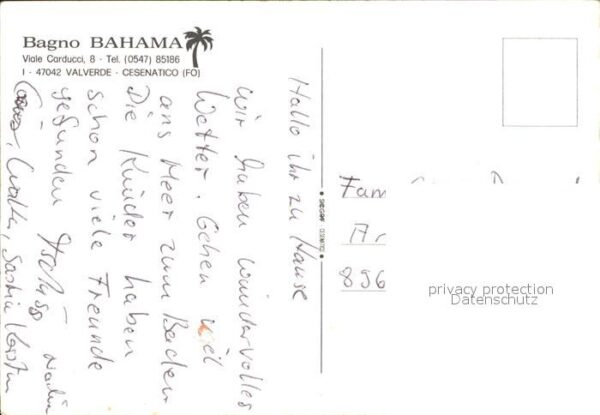 Bagno BAHAMA
Viale Carducci, 8 - Tel. (0547) 85186
I - 47042 VALVERDE - CESENATICO (FO)
Hallo ihr zu Hause
Wir haben wundervolles
Wetter. Gehen viel
ans Meer zum Baden
Die Kinder haben
schon viele Freunde
gefunden Tschüss Nadia
Saskia
Fam
Ar
896
privacy protection
Datenschutz